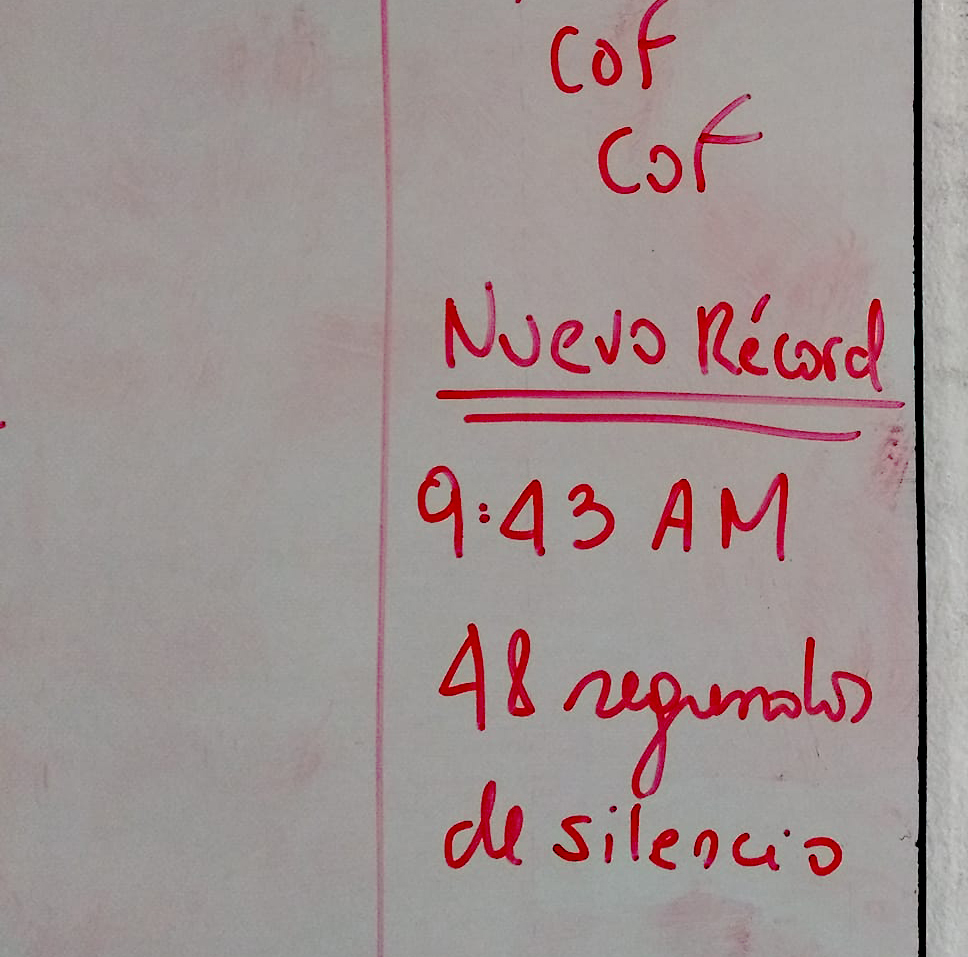 cof
cof
Nuevo Récord
9:43 AM
48 segundos
de silencio